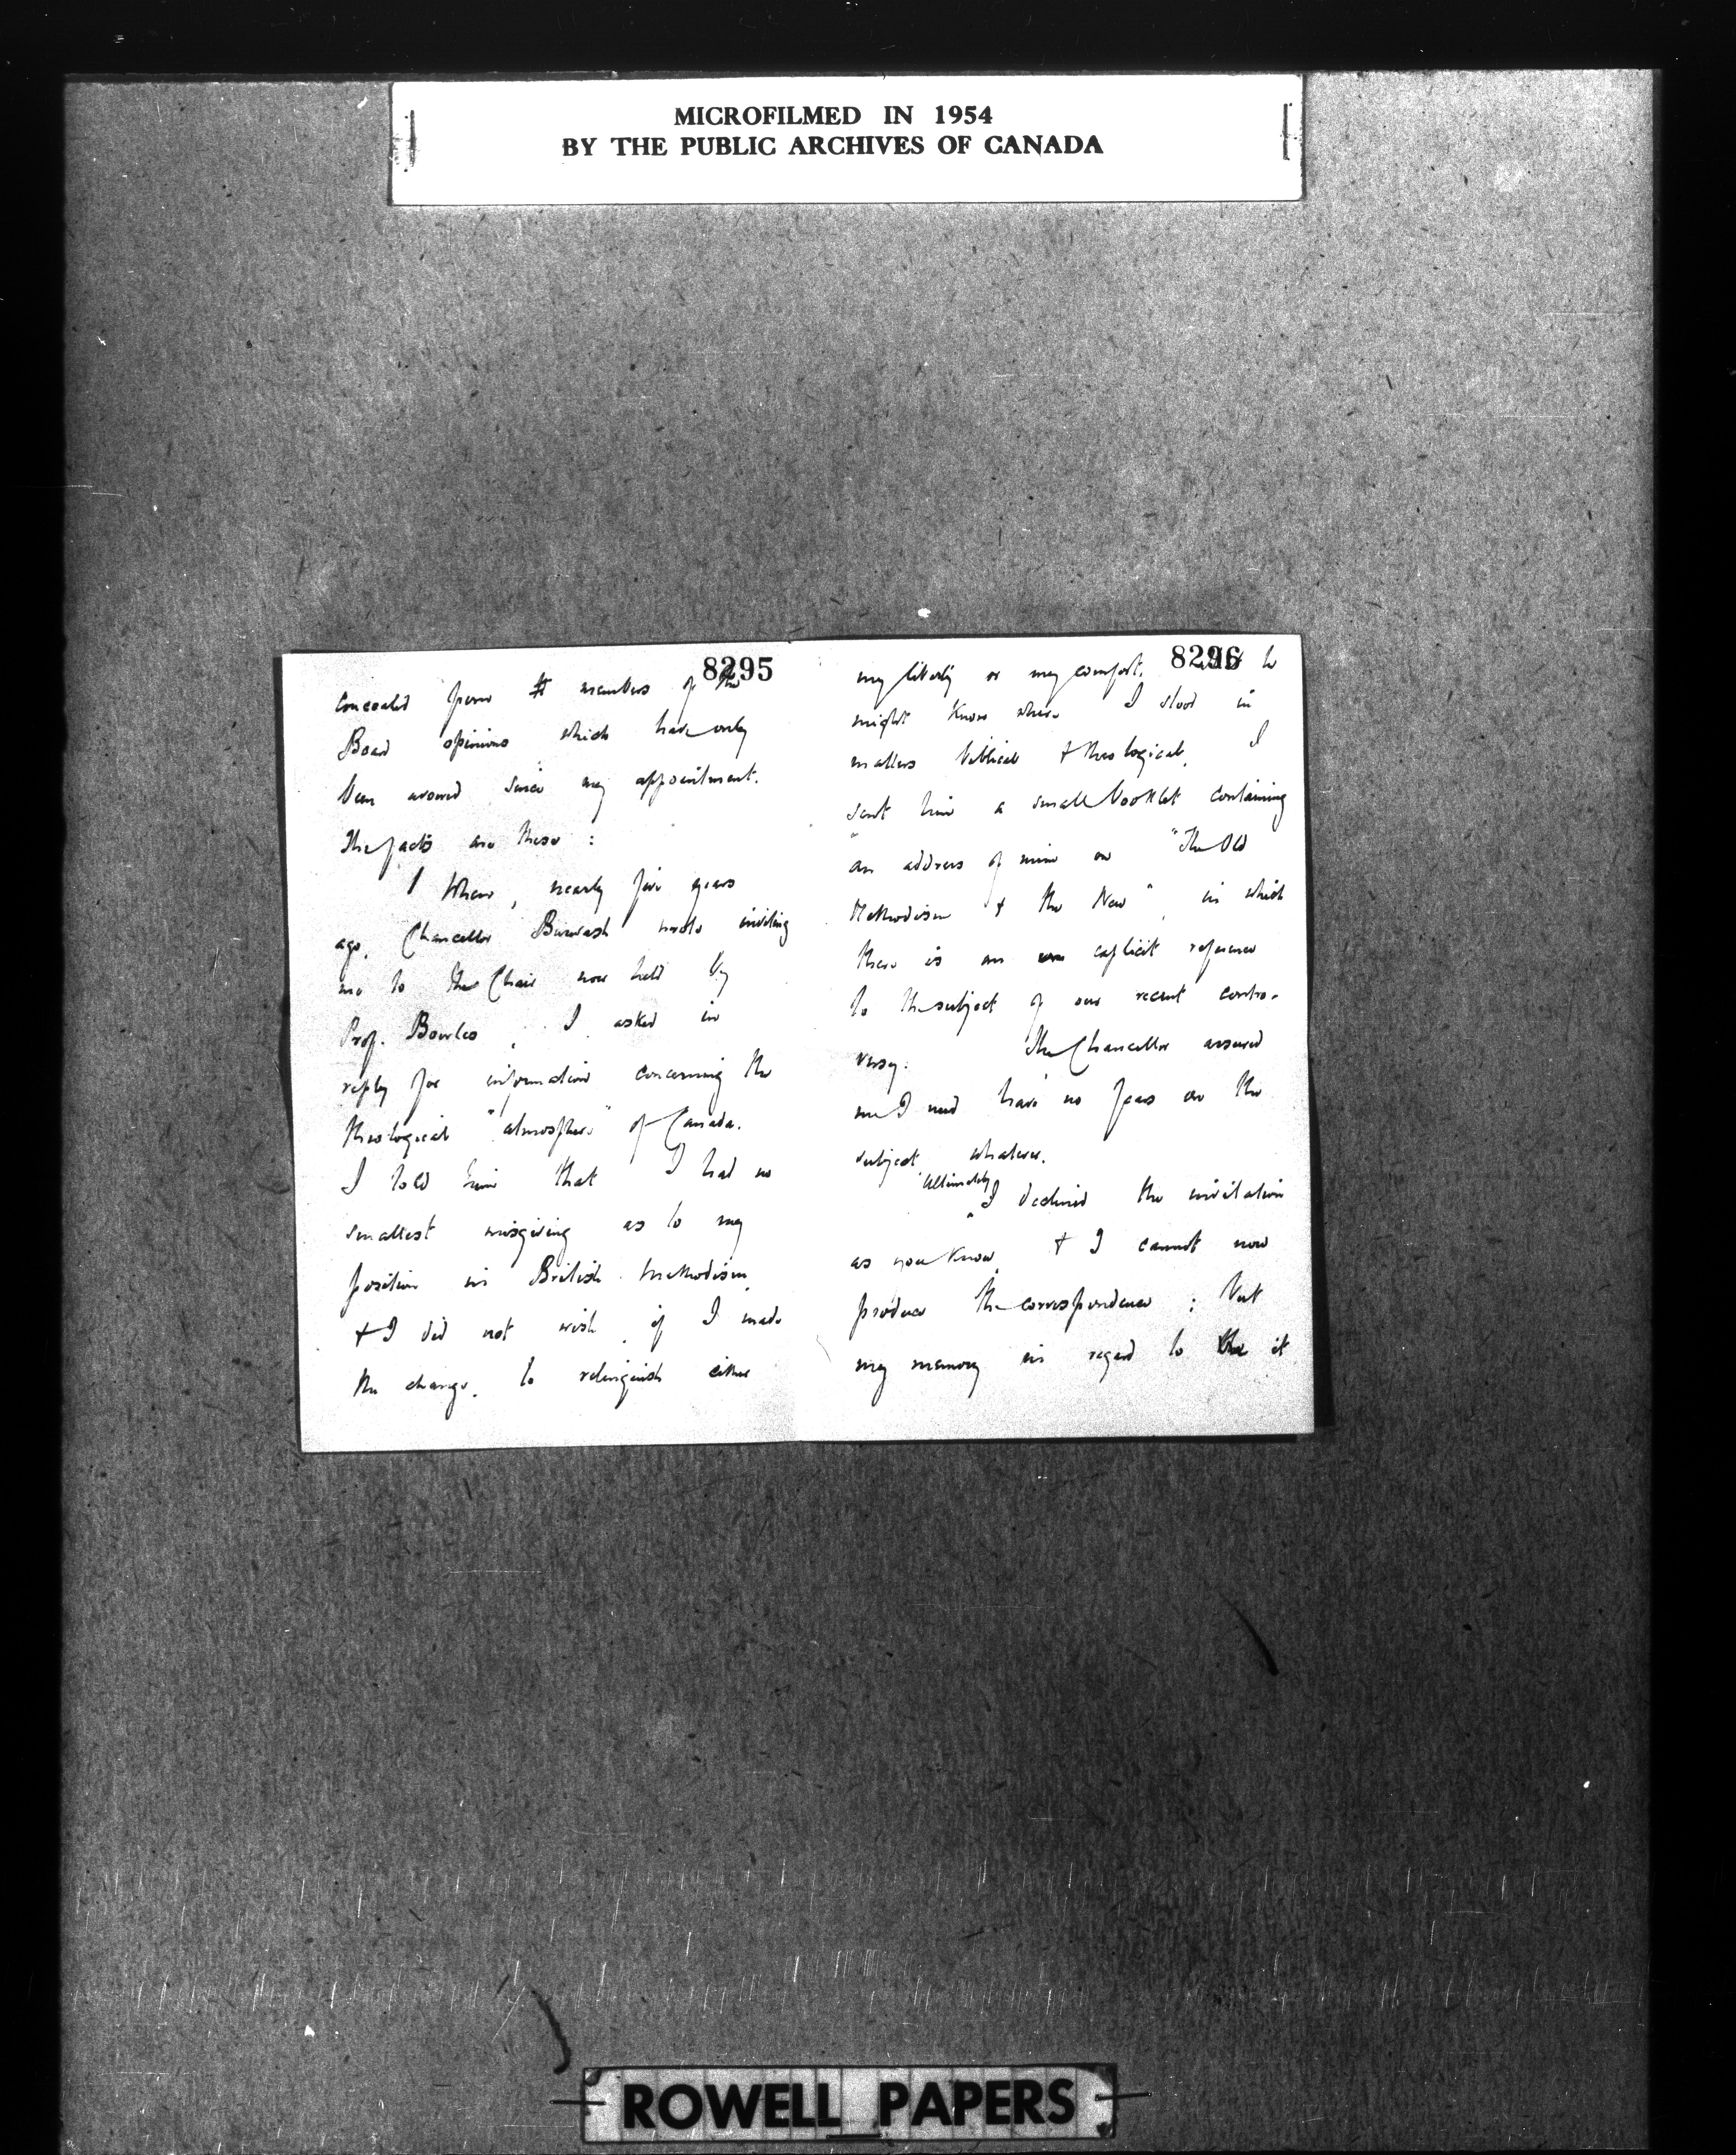 MICROFILMED IN 1954
BY THE PUBLIC ARCHIVES OF CANADA
8295
concealed from members of the
Board opinions which have only
been avowed since my appointment.
The facts are these :
1 When, nearly five years
ago, Chancellor Burwash wrote inviting
me to the Chair now held by
Prof. Bowles, I asked in
reply for information concerning the
theological "atmosphere" of Canada.
I told him that I had no
smallest misgiving as to my
position in British Methodism,
& I did not wish, if I made
the change, to relinquish either
8296
my liberty or my comfort. he
might know where I stood in
matters biblical & theological, I
sent him a small booklet containing
an address of mine on "The Old
Methodism & the New", in which
there is an explicit reference
to the subject of our recent contro-
versy. The Chancellor assured
me I need have no fears on the
subject whatever.
Ultimately
I declined the invitation
as you know, & I cannot now
produce the correspondence ; but
my memory in regard to the it
ROWELL PAPERS